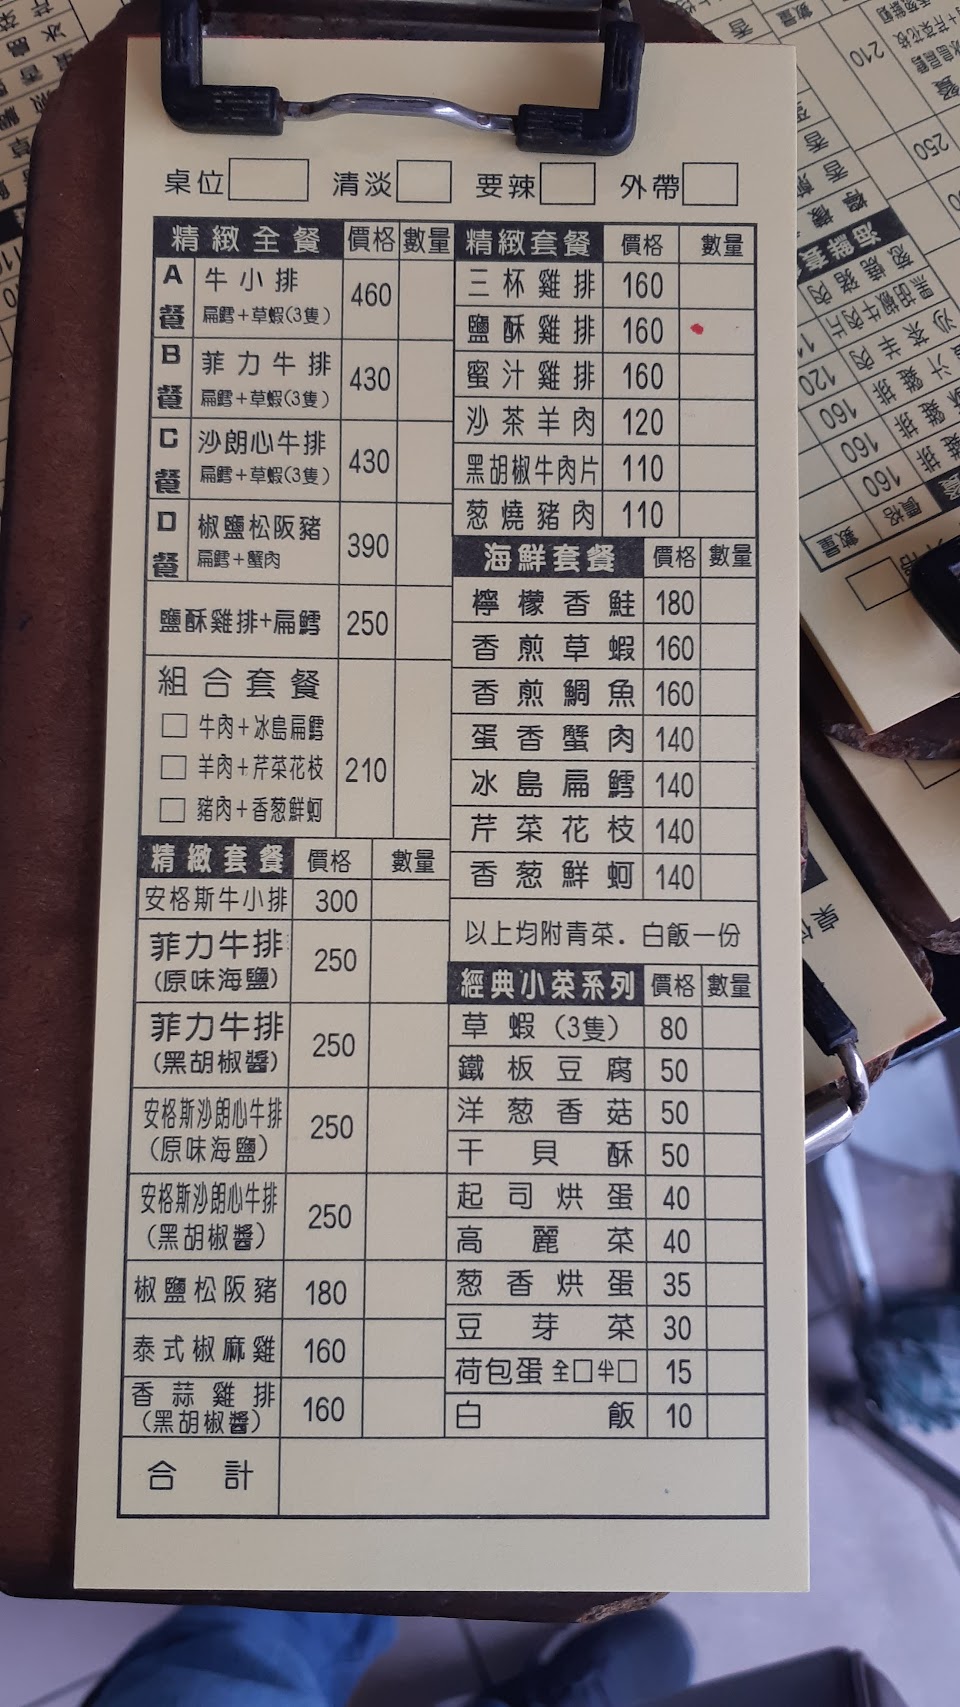 桌位 清淡 要辣 外帶
精緻全餐 價格 數量
A餐 牛小排 460
扁鱈+草蝦(3隻)
B餐 菲力牛排 430
扁鱈+草蝦(3隻)
C餐 沙朗心牛排 430
扁鱈+草蝦(3隻)
D餐 椒鹽松阪豬 390
扁鱈+蟹肉
鹽酥雞排+扁鱈 250
組合套餐 210
□ 牛肉+冰島扁鱈
□ 羊肉+芹菜花枝
□ 豬肉+香葱鮮蚵
精緻套餐 價格 數量
安格斯牛小排 300
菲力牛排 250
(原味海鹽)
菲力牛排 250
(黑胡椒醬)
安格斯沙朗心牛排 250
(原味海鹽)
安格斯沙朗心牛排 250
(黑胡椒醬)
椒鹽松阪豬 180
泰式椒麻雞 160
香蒜雞排 160
(黑胡椒醬)
精緻套餐 價格 數量
三杯雞排 160
鹽酥雞排 160
蜜汁雞排 160
沙茶羊肉 120
黑胡椒牛肉片 110
葱燒豬肉 110
海鮮套餐 價格 數量
檸檬香鮭 180
香煎草蝦 160
香煎鯛魚 160
蛋香蟹肉 140
冰島扁鱈 140
芹菜花枝 140
香葱鮮蚵 140
以上均附青菜.白飯一份
經典小菜系列 價格 數量
草蝦(3隻) 80
鐵板豆腐 50
洋葱香菇 50
干貝酥 50
起司烘蛋 40
高麗菜 40
葱香烘蛋 35
豆芽菜 30
荷包蛋 全□半□ 15
白飯 10
合計